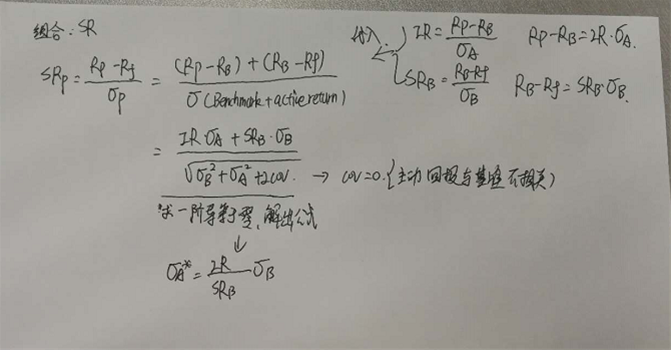 组合:SR
SRp = (Rp-Rf)/σp = ((Rp-RB)+(RB-Rf))/σ(Benchmark+active return)
代入 { IR = (Rp-RB)/σA Rp-RB = IR·σA.
SRB = (RB-Rf)/σB RB-Rf = SRB·σB.
= (IR·σA + SRB·σB)/√(σB²+σA²+2cov. → cov=0.{主动回报与基准不相关)
求一阶导等于零,解出公式
↓
σA* = (IR/SRB) σB